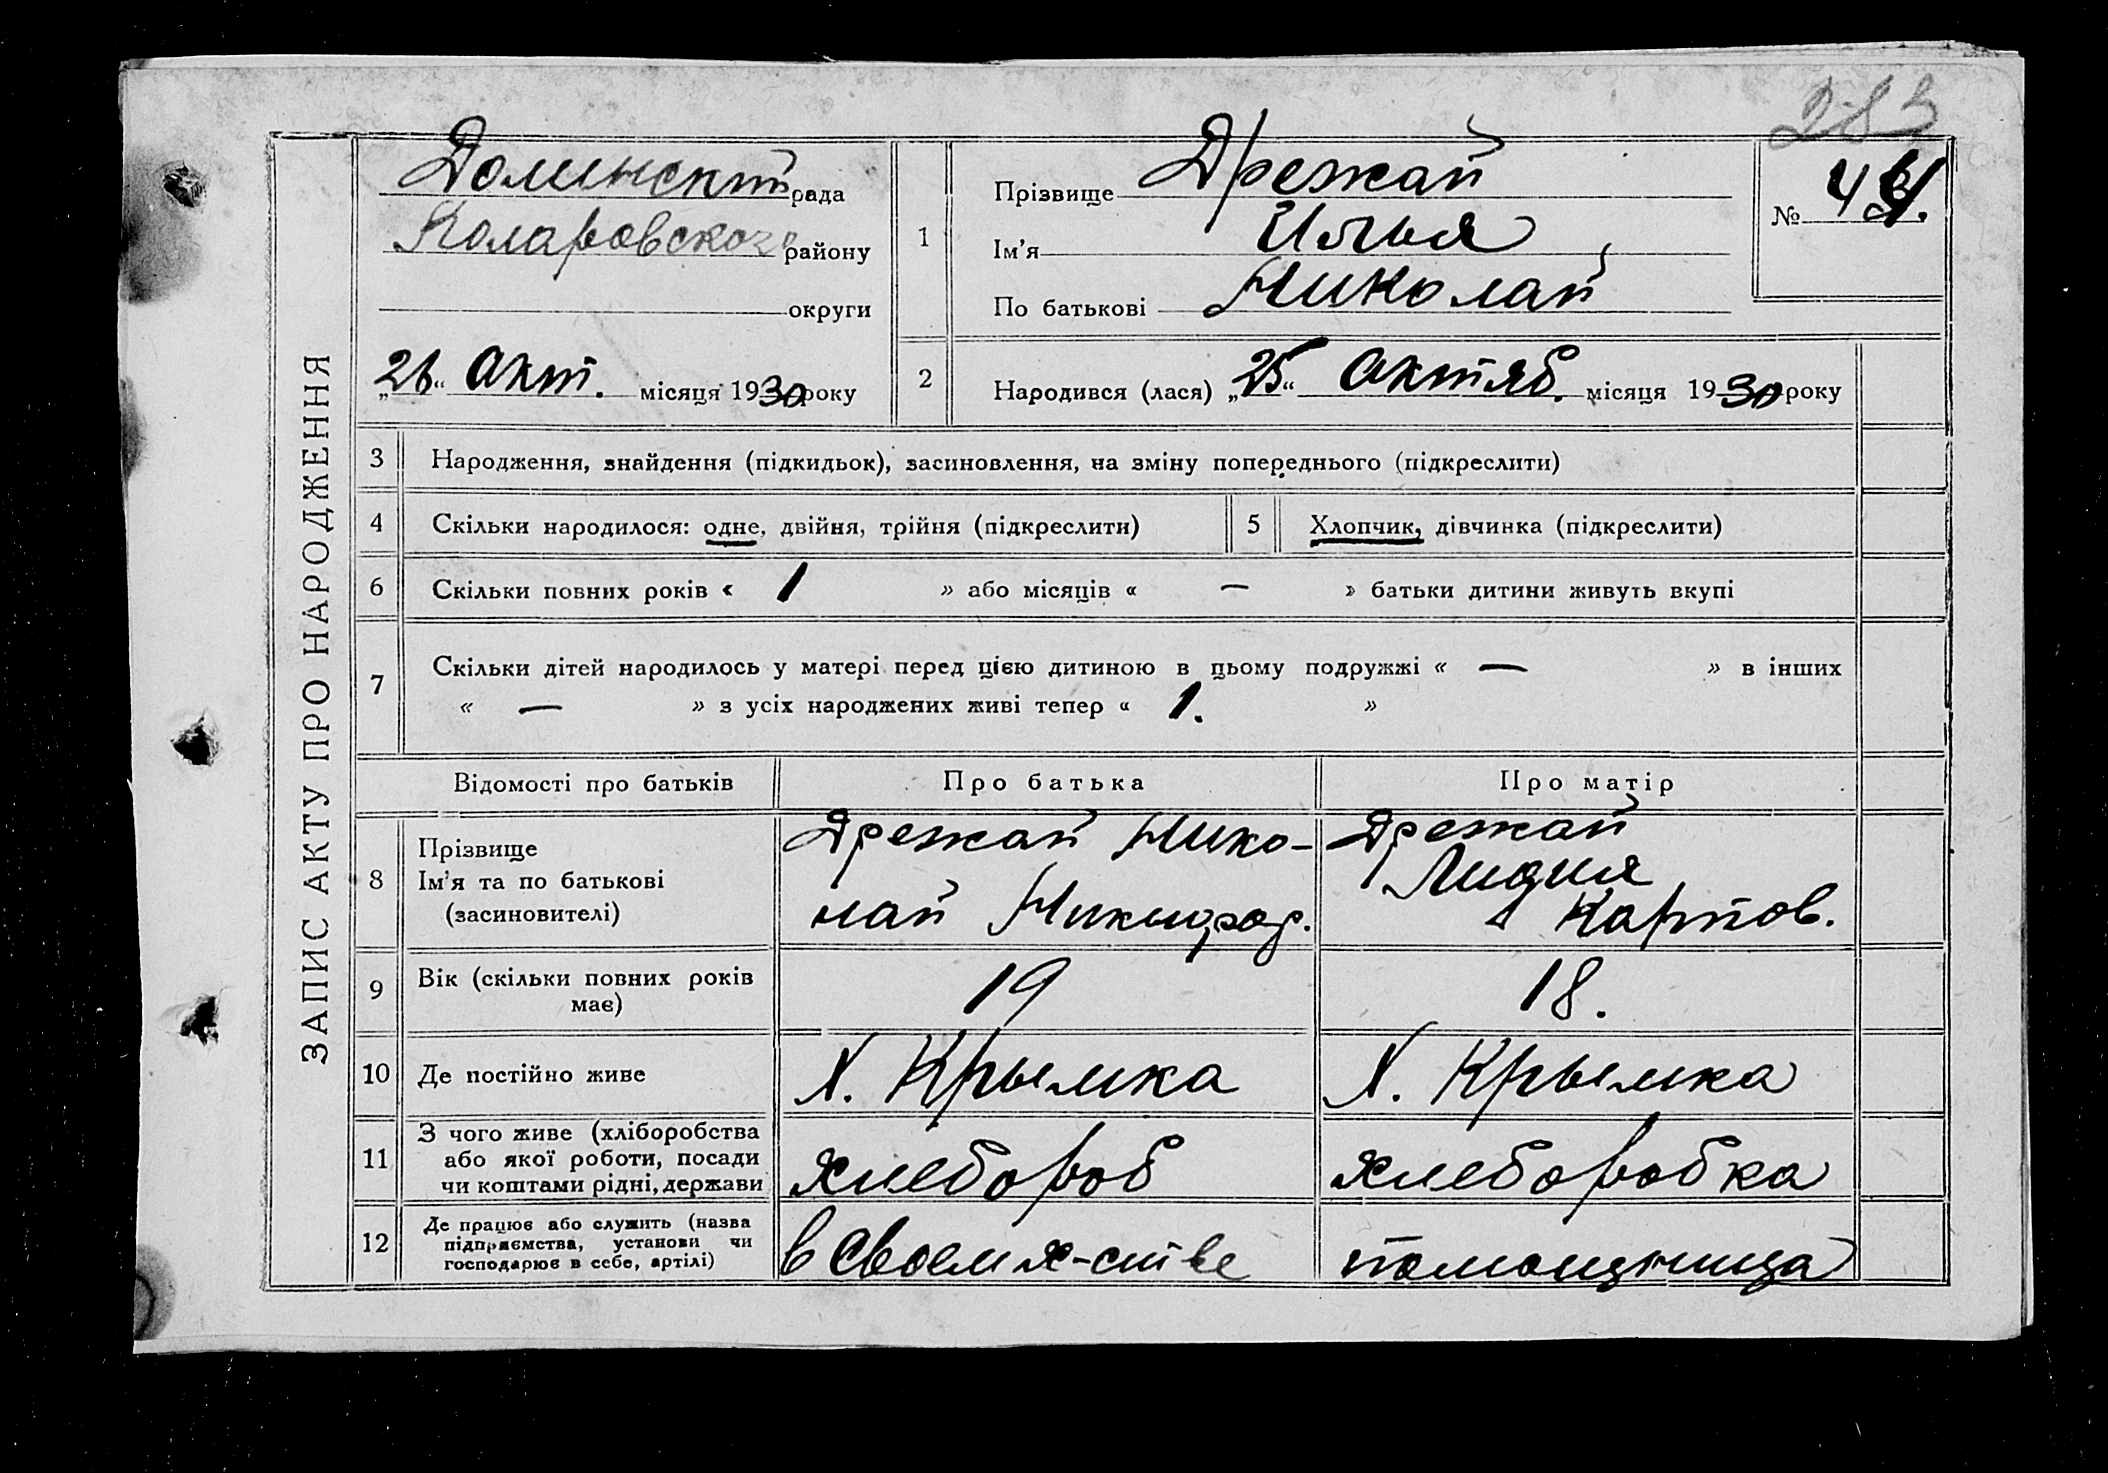 283
ЗАПИС АКТУ ПРО НАРОДЖЕННЯ
Долинский рада
Коларовского району
округи
„26“ Окт. місяця 1930 року
1
Прізвище Дрежай
Ім'я Илья
По батькові Николай
№
2
Народився (лася) „25“ Октяб. місяця 1930 року
3 Народження, знайдення (підкидьок), засиновлення, на зміну попереднього (підкреслити)
4 Скільки народилося: одне, двійня, трійня (підкреслити)
5 Хлопчик, дівчинка (підкреслити)
6 Скільки повних років « 1 » або місяців « — » батьки дитини живуть вкупі
7 Скільки дітей народилось у матері перед цією дитиною в цьому подружжі « — » в інших
« — » з усіх народжених живі тепер « 1. »
Відомості про батьків Про батька Про матір
8 Прізвище
Ім'я та по батькові
(засиновителі)
Дрежай Нико-
лай Никифор.
Дрежай
Лидия
Карпов.
9 Вік (скільки повних років
має)
19
18.
10 Де постійно живе Х. Крымка Х. Крымка
11 З чого живе (хліборобства
або якої роботи, посади
чи коштами рідні, держави
хлебороб
хлеборобка
12 Де працює або служить (назва
підприємства, установи чи
господарює в себе, артілі)
в своем х-стве
помощница